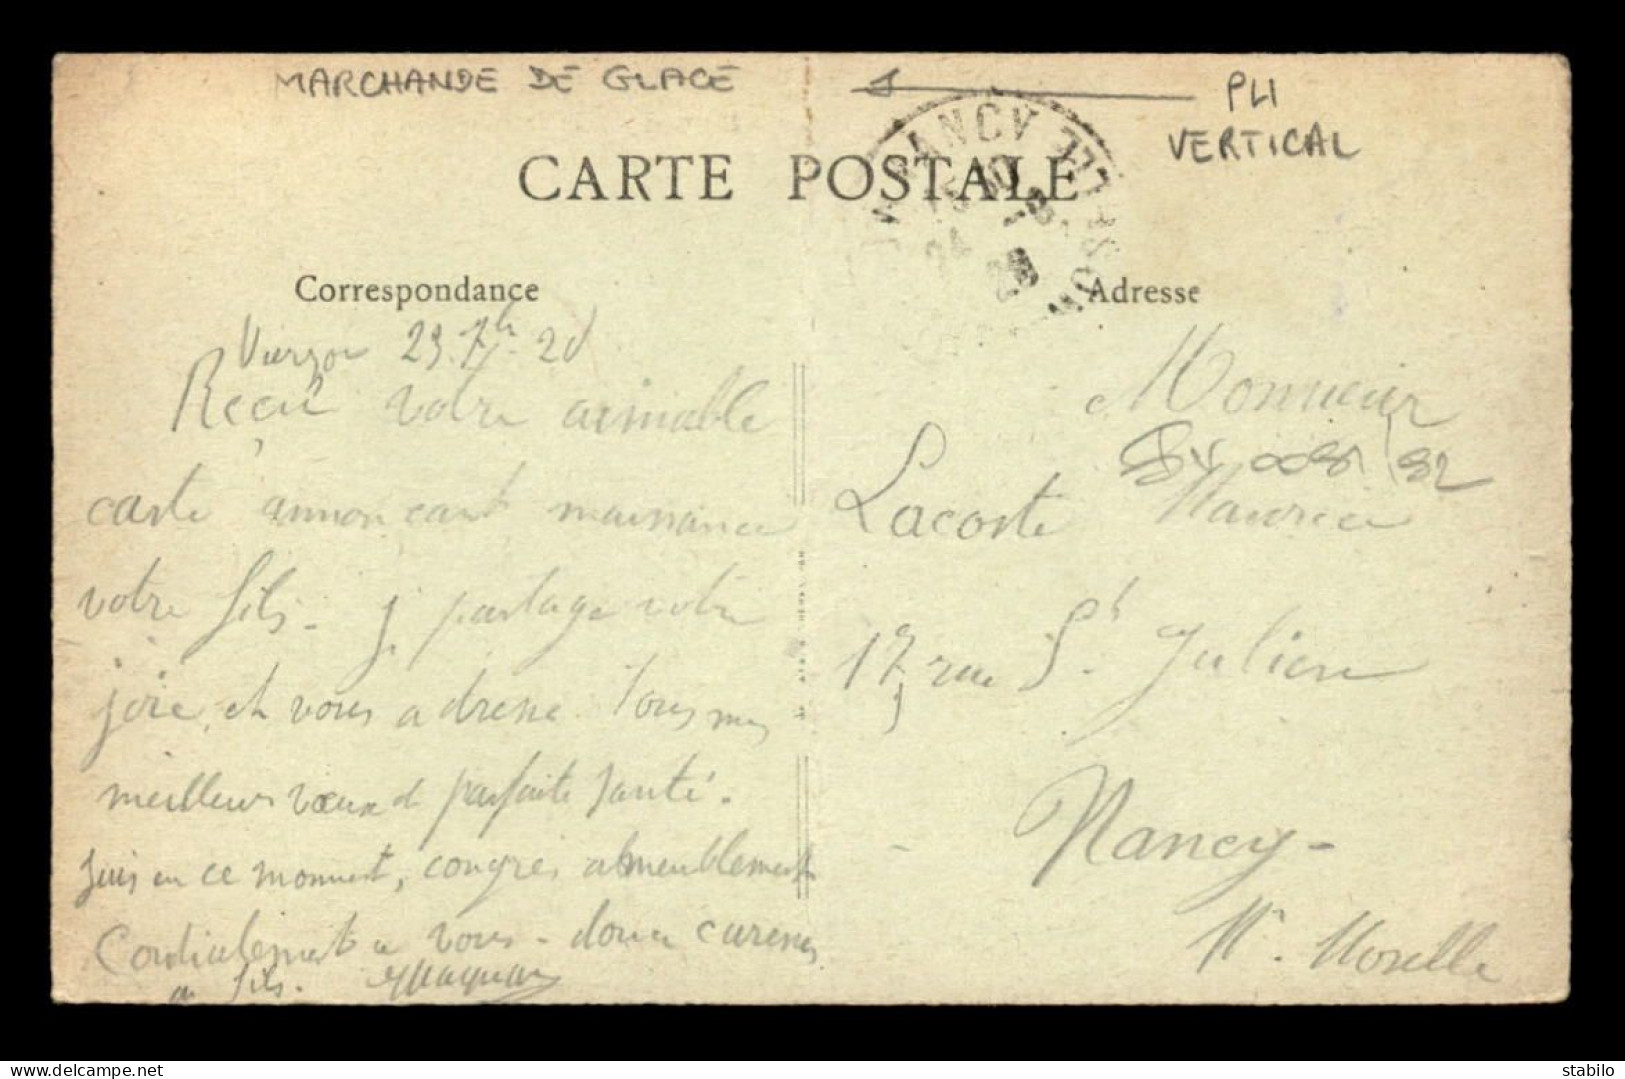 MARCHANDE DE GLACE
PLI
VERTICAL
CARTE POSTALE
NANCY
MOSELLE
Correspondance
Adresse
Vierzon 23 7bre 20
Reçu votre aimable
carte annonçant naissance
votre fils - je partage votre
joie et vous adresse tous mes
meilleurs vœux de parfaite santé.
Suis en ce moment, congrès ameublement
Cordialement à vous - douces caresses
au fils.
Monsieur
Lacoste Maurice
17, rue St Julien
Nancy -
Mthe Moselle
delcampe.net
stabilo